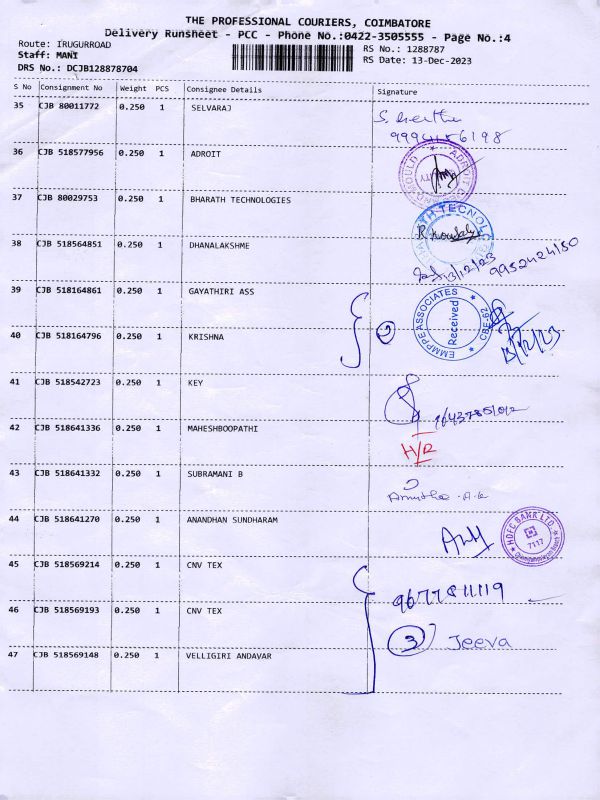 THE PROFESSIONAL COURIERS, COIMBATORE
Delivery Runsheet - PCC - Phone No.:0422-3505555 - Page No.:4
Route: IRUGURROAD
RS No.: 1288787
Staff: MANI
RS Date: 13-Dec-2023
DRS No.: DCJB128878704
S No Consignment No Weight PCS Consignee Details Signature
35 CJB 80011772 0.250 1 SELVARAJ
36 CJB 518577956 0.250 1 ADROIT
ADROIT MOULD
37 CJB 80029753 0.250 1 BHARATH TECHNOLOGIES
38 CJB 518564851 0.250 1 DHANALAKSHME
13/12/23 9952424150
39 CJB 518164861 0.250 1 GAYATHIRI ASS
EMMPPE ASSOCIATES
Received
CBE-62
40 CJB 518164796 0.250 1 KRISHNA
2
13/12/23
41 CJB 518542723 0.250 1 KEY
42 CJB 518641336 0.250 1 MAHESHBOOPATHI
H/R
43 CJB 518641332 0.250 1 SUBRAMANI B
44 CJB 518641270 0.250 1 ANANDHAN SUNDHARAM
HDFC BANK LTD.
7117
45 CJB 518569214 0.250 1 CNV TEX
9677811119
46 CJB 518569193 0.250 1 CNV TEX
3 Jeeva
47 CJB 518569148 0.250 1 VELLIGIRI ANDAVAR